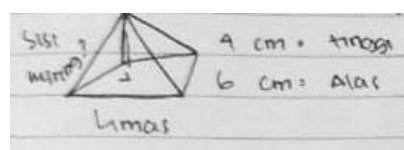 Sisi
miring?
4 cm = tinggi
6 cm = Alas
Limas